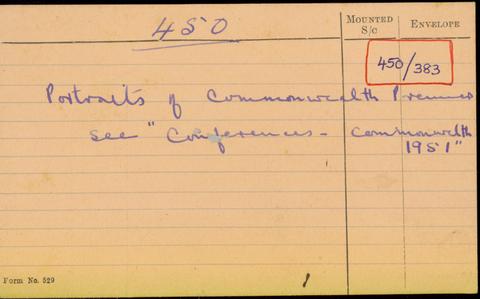 450
MOUNTED S/c
ENVELOPE
450/383
Portraits of Commonwealth Premiers
see "Conferences - Commonwealth
1951"
Form No. 529
1